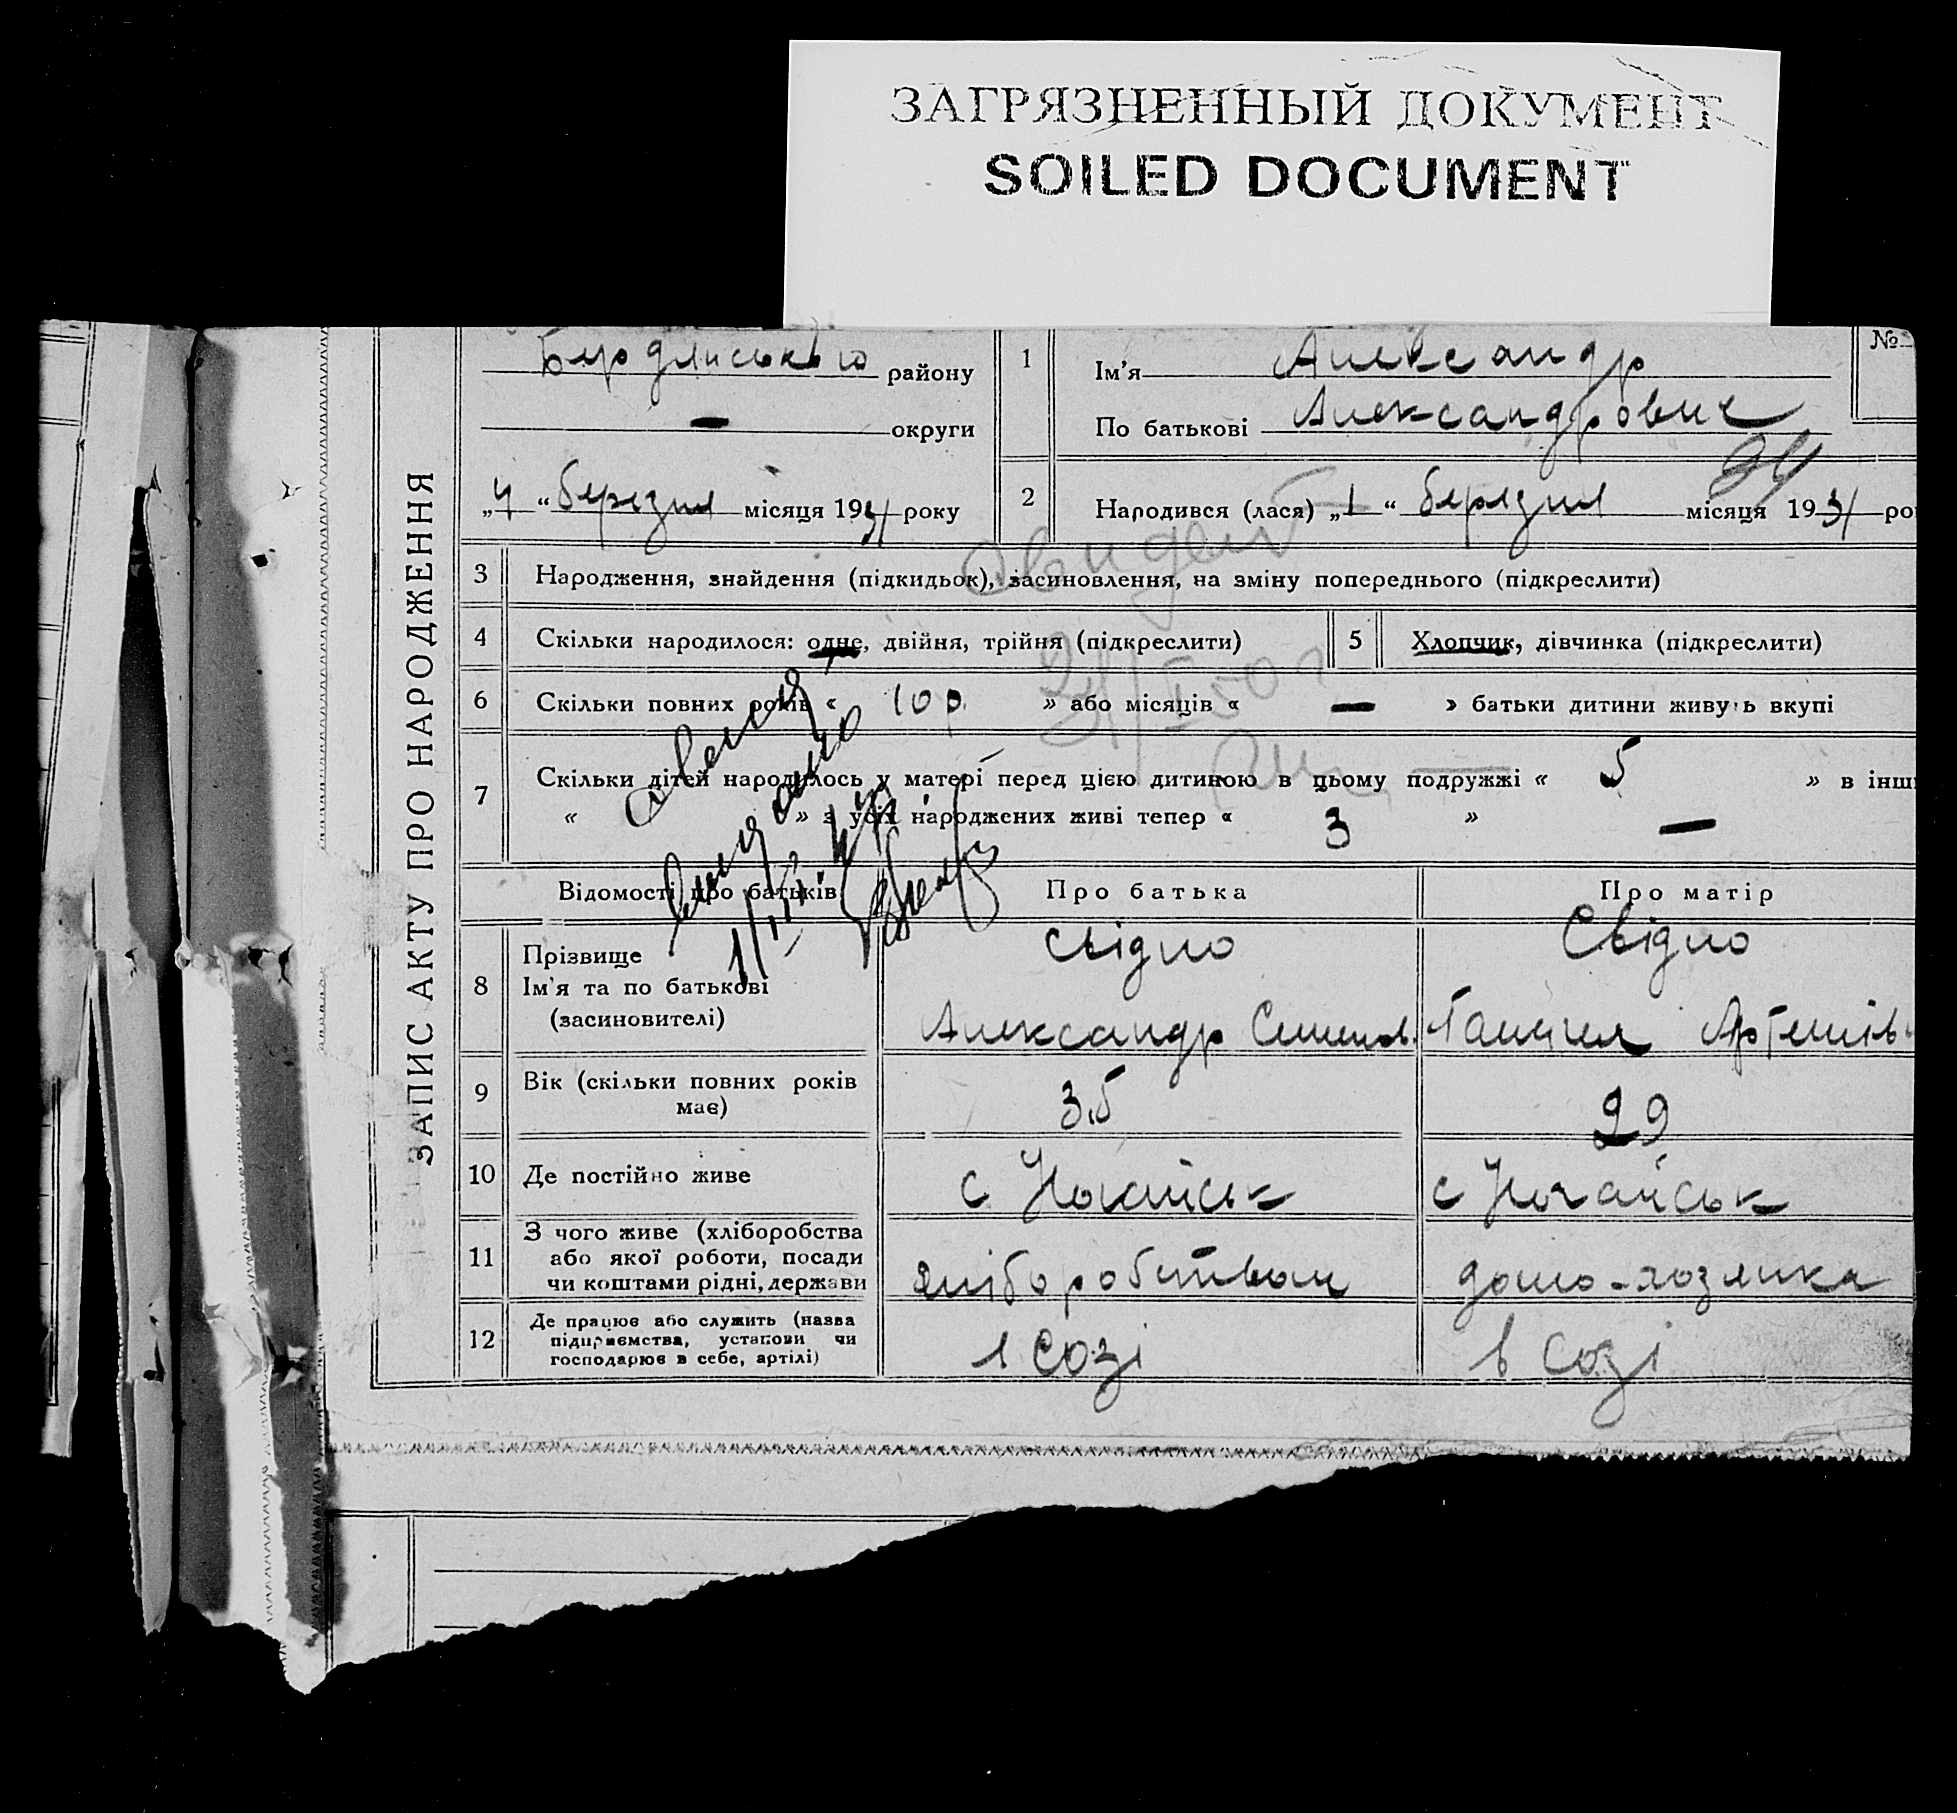 ЗАГРЯЗНЕННЫЙ ДОКУМЕНТ
SOILED DOCUMENT
ЗАПИС АКТУ ПРО НАРОДЖЕННЯ
Бердянського району
— округи
„4“ березня місяця 1931 року
№
1 Ім'я Александр
По батькові Александрович
2 Народився (лася) „1“ березня місяця 1931 ро
3 Народження, знайдення (підкидьок), засиновлення, на зміну попереднього (підкреслити)
4 Скільки народилося: одне, двійня, трійня (підкреслити)
5 Хлопчик, дівчинка (підкреслити)
6 Скільки повних років « 10 р. » або місяців « — » батьки дитини живуть вкупі
7 Скільки дітей народилось у матері перед цією дитиною в цьому подружжі « 5 » в інш
« » з усіх народжених живі тепер « 3 » —
Відомості про батьків Про батька Про матір
8 Прізвище Свідло Свідло
Ім'я та по батькові
(засиновителі) Александр Семенов. Артемів
9 Вік (скільки повних років
має) 35 29
10 Де постійно живе с Ногайськ с Ногайськ
11 З чого живе (хліборобства
або якої роботи, посади
чи коштами рідні, держави хліборобством домо-хозяйка
12 Де працює або служить (назва
підприємства, установи чи
господарює в себе, артілі) в Созі в Созі